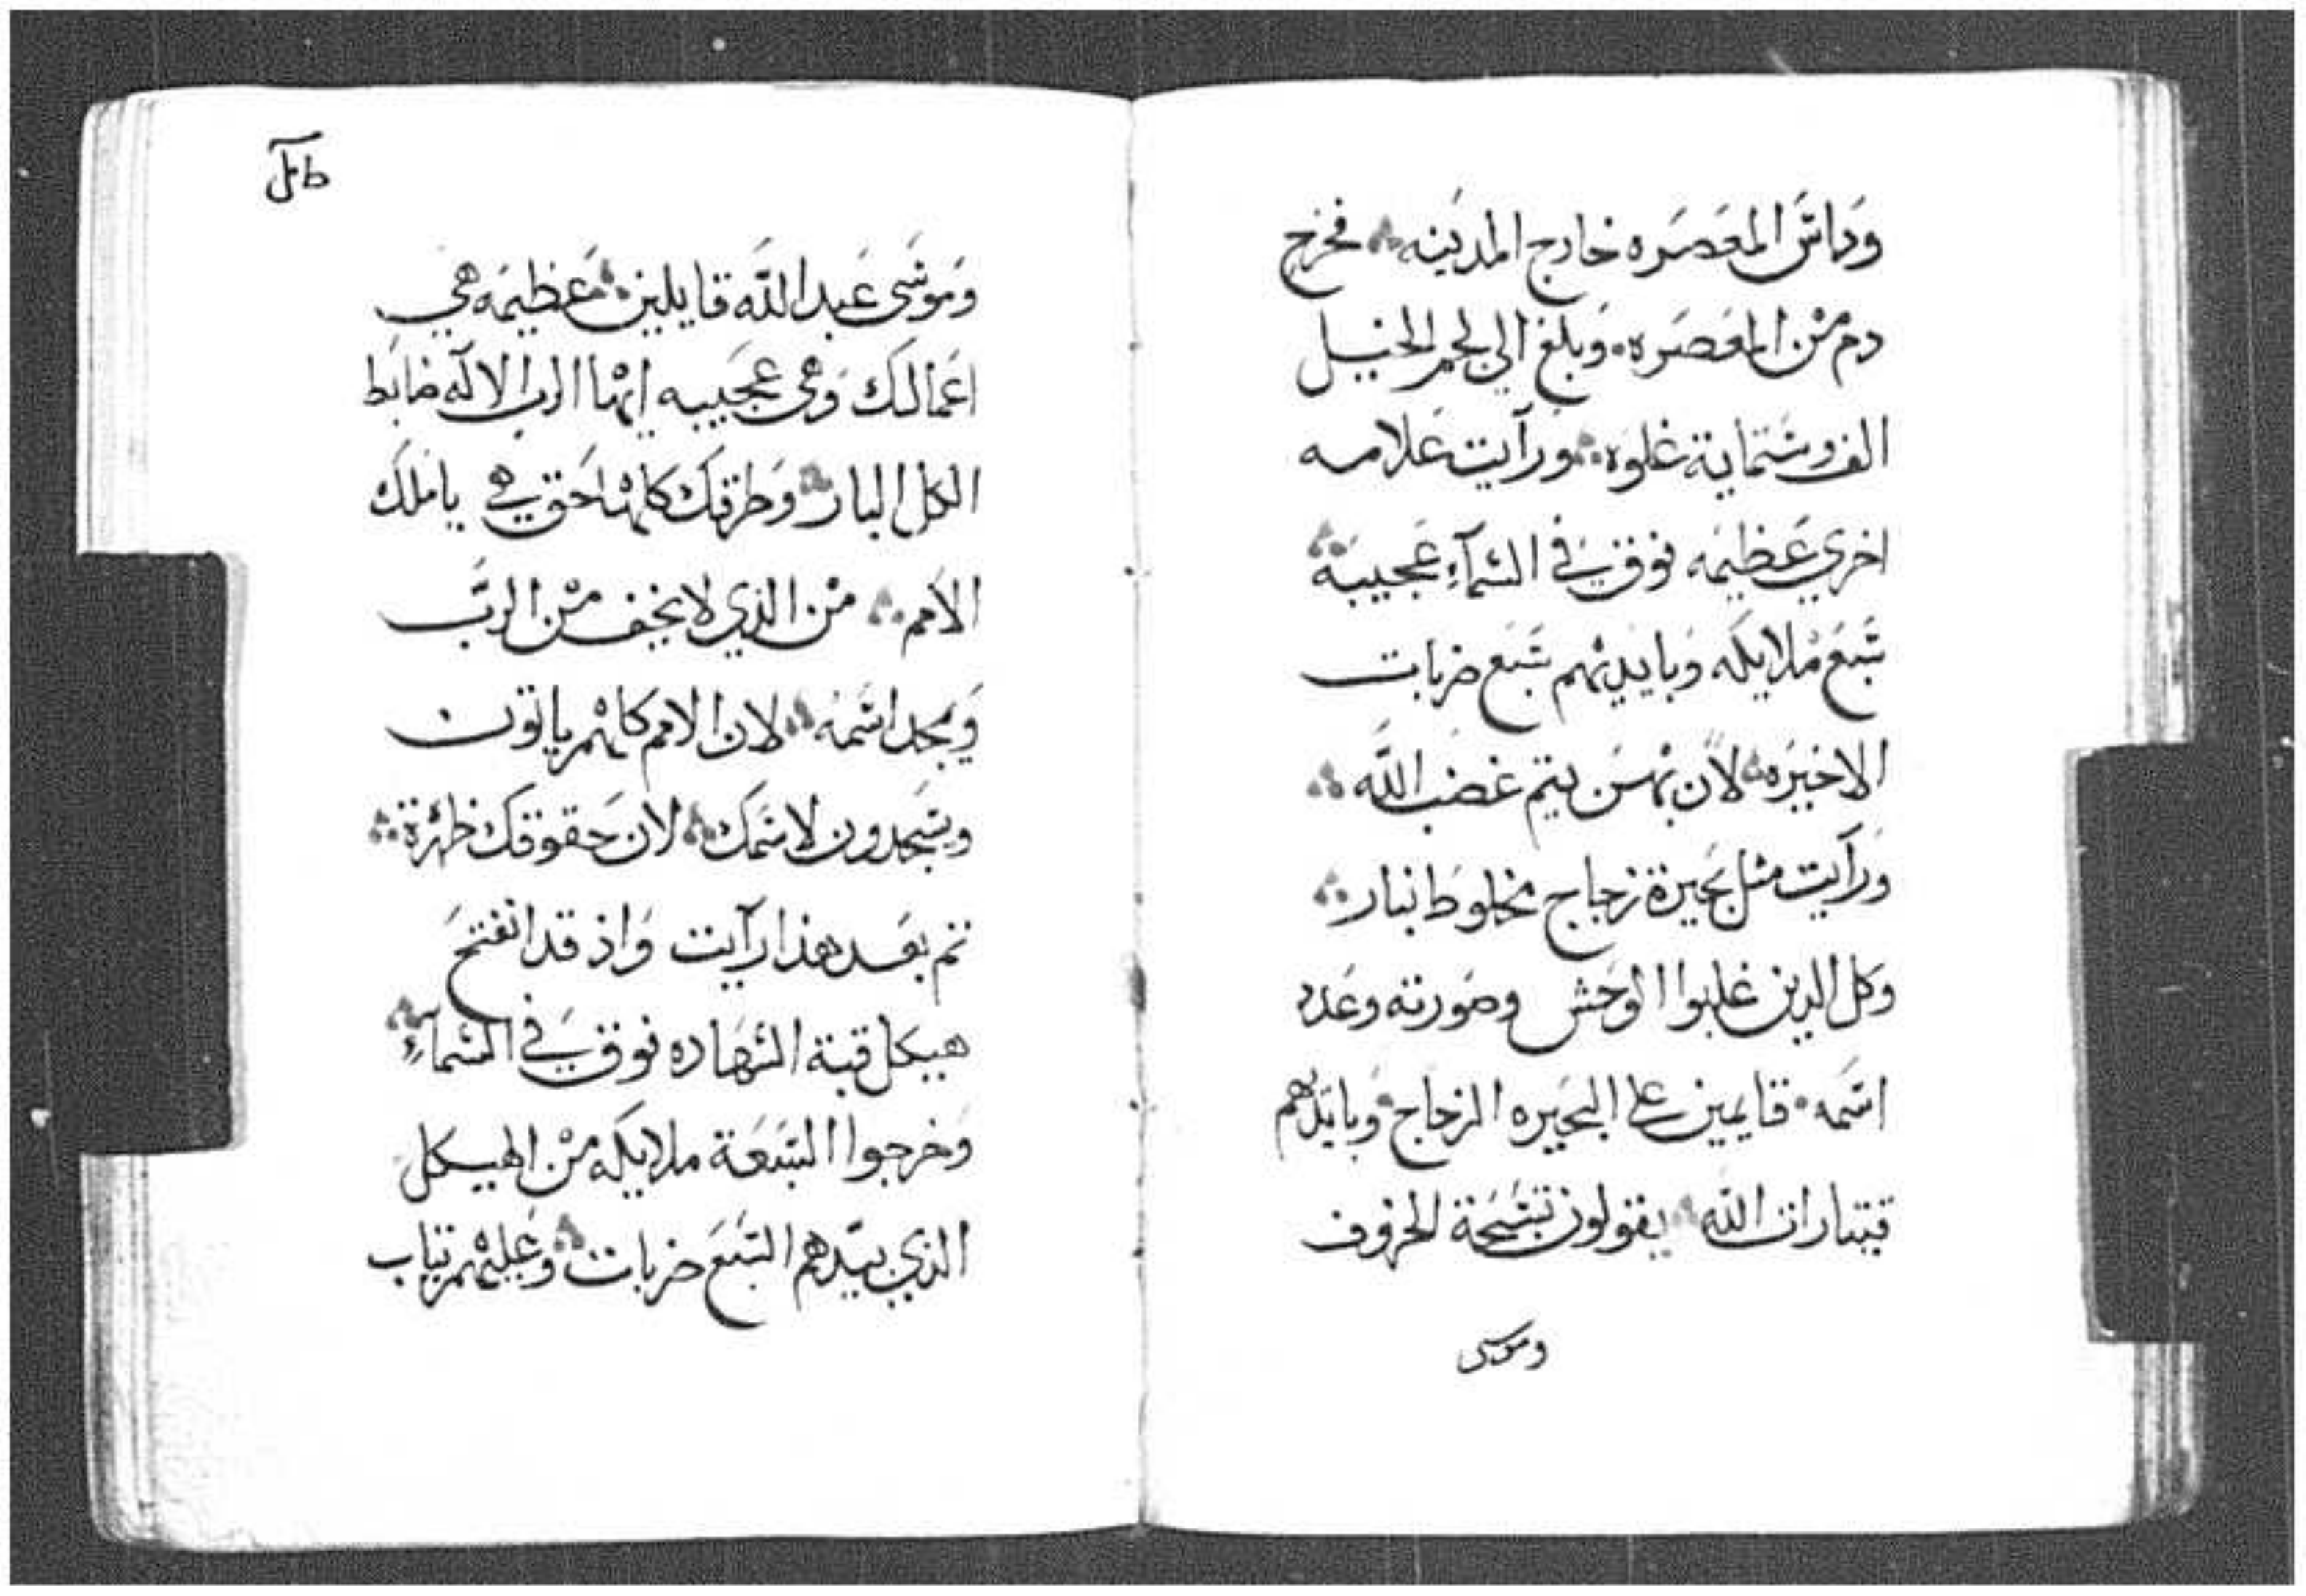 وداس المعصره خارج المدينه فخرج
دم من المعصره وبلغ الي لجم الخيل
الف وستماية غلوه ورآيت علامه
اخري عظيمه فوق في السمآء عجيبة
سبع ملايكه وبايديهم سبع ضربات
الاخيره لان بهن يتم غضب الله
ورآيت مثل بحيرة زجاج مخلوط بنار
وكل الدين غلبوا الوحش وصورته وعدد
اسمه قايمين علي البحيره الزجاج وبايدهم
قيتارات الله يقولون تسبحة الخروف
وموسى
وموسى عبد الله قايلين عظيمه هي
اعمالك وهي عجيبه ايها الرب الالآه ضابط
الكل البار وطرقك كلها حق هي يا ملك
الامم من الذي لا يخف من الرب
ويمجد اسمه لان الامم كلهم ياتون
ويسجدون لاسمك لان حقوقك ظاهرة
تم بعد هذا رآيت واذ قد انفتح
هيكل قبة الشهاده فوق في السمآء
وخرجوا السبعة ملايكه من الهيكل
الذي بيدهم السبع ضربات وعليهم تياب